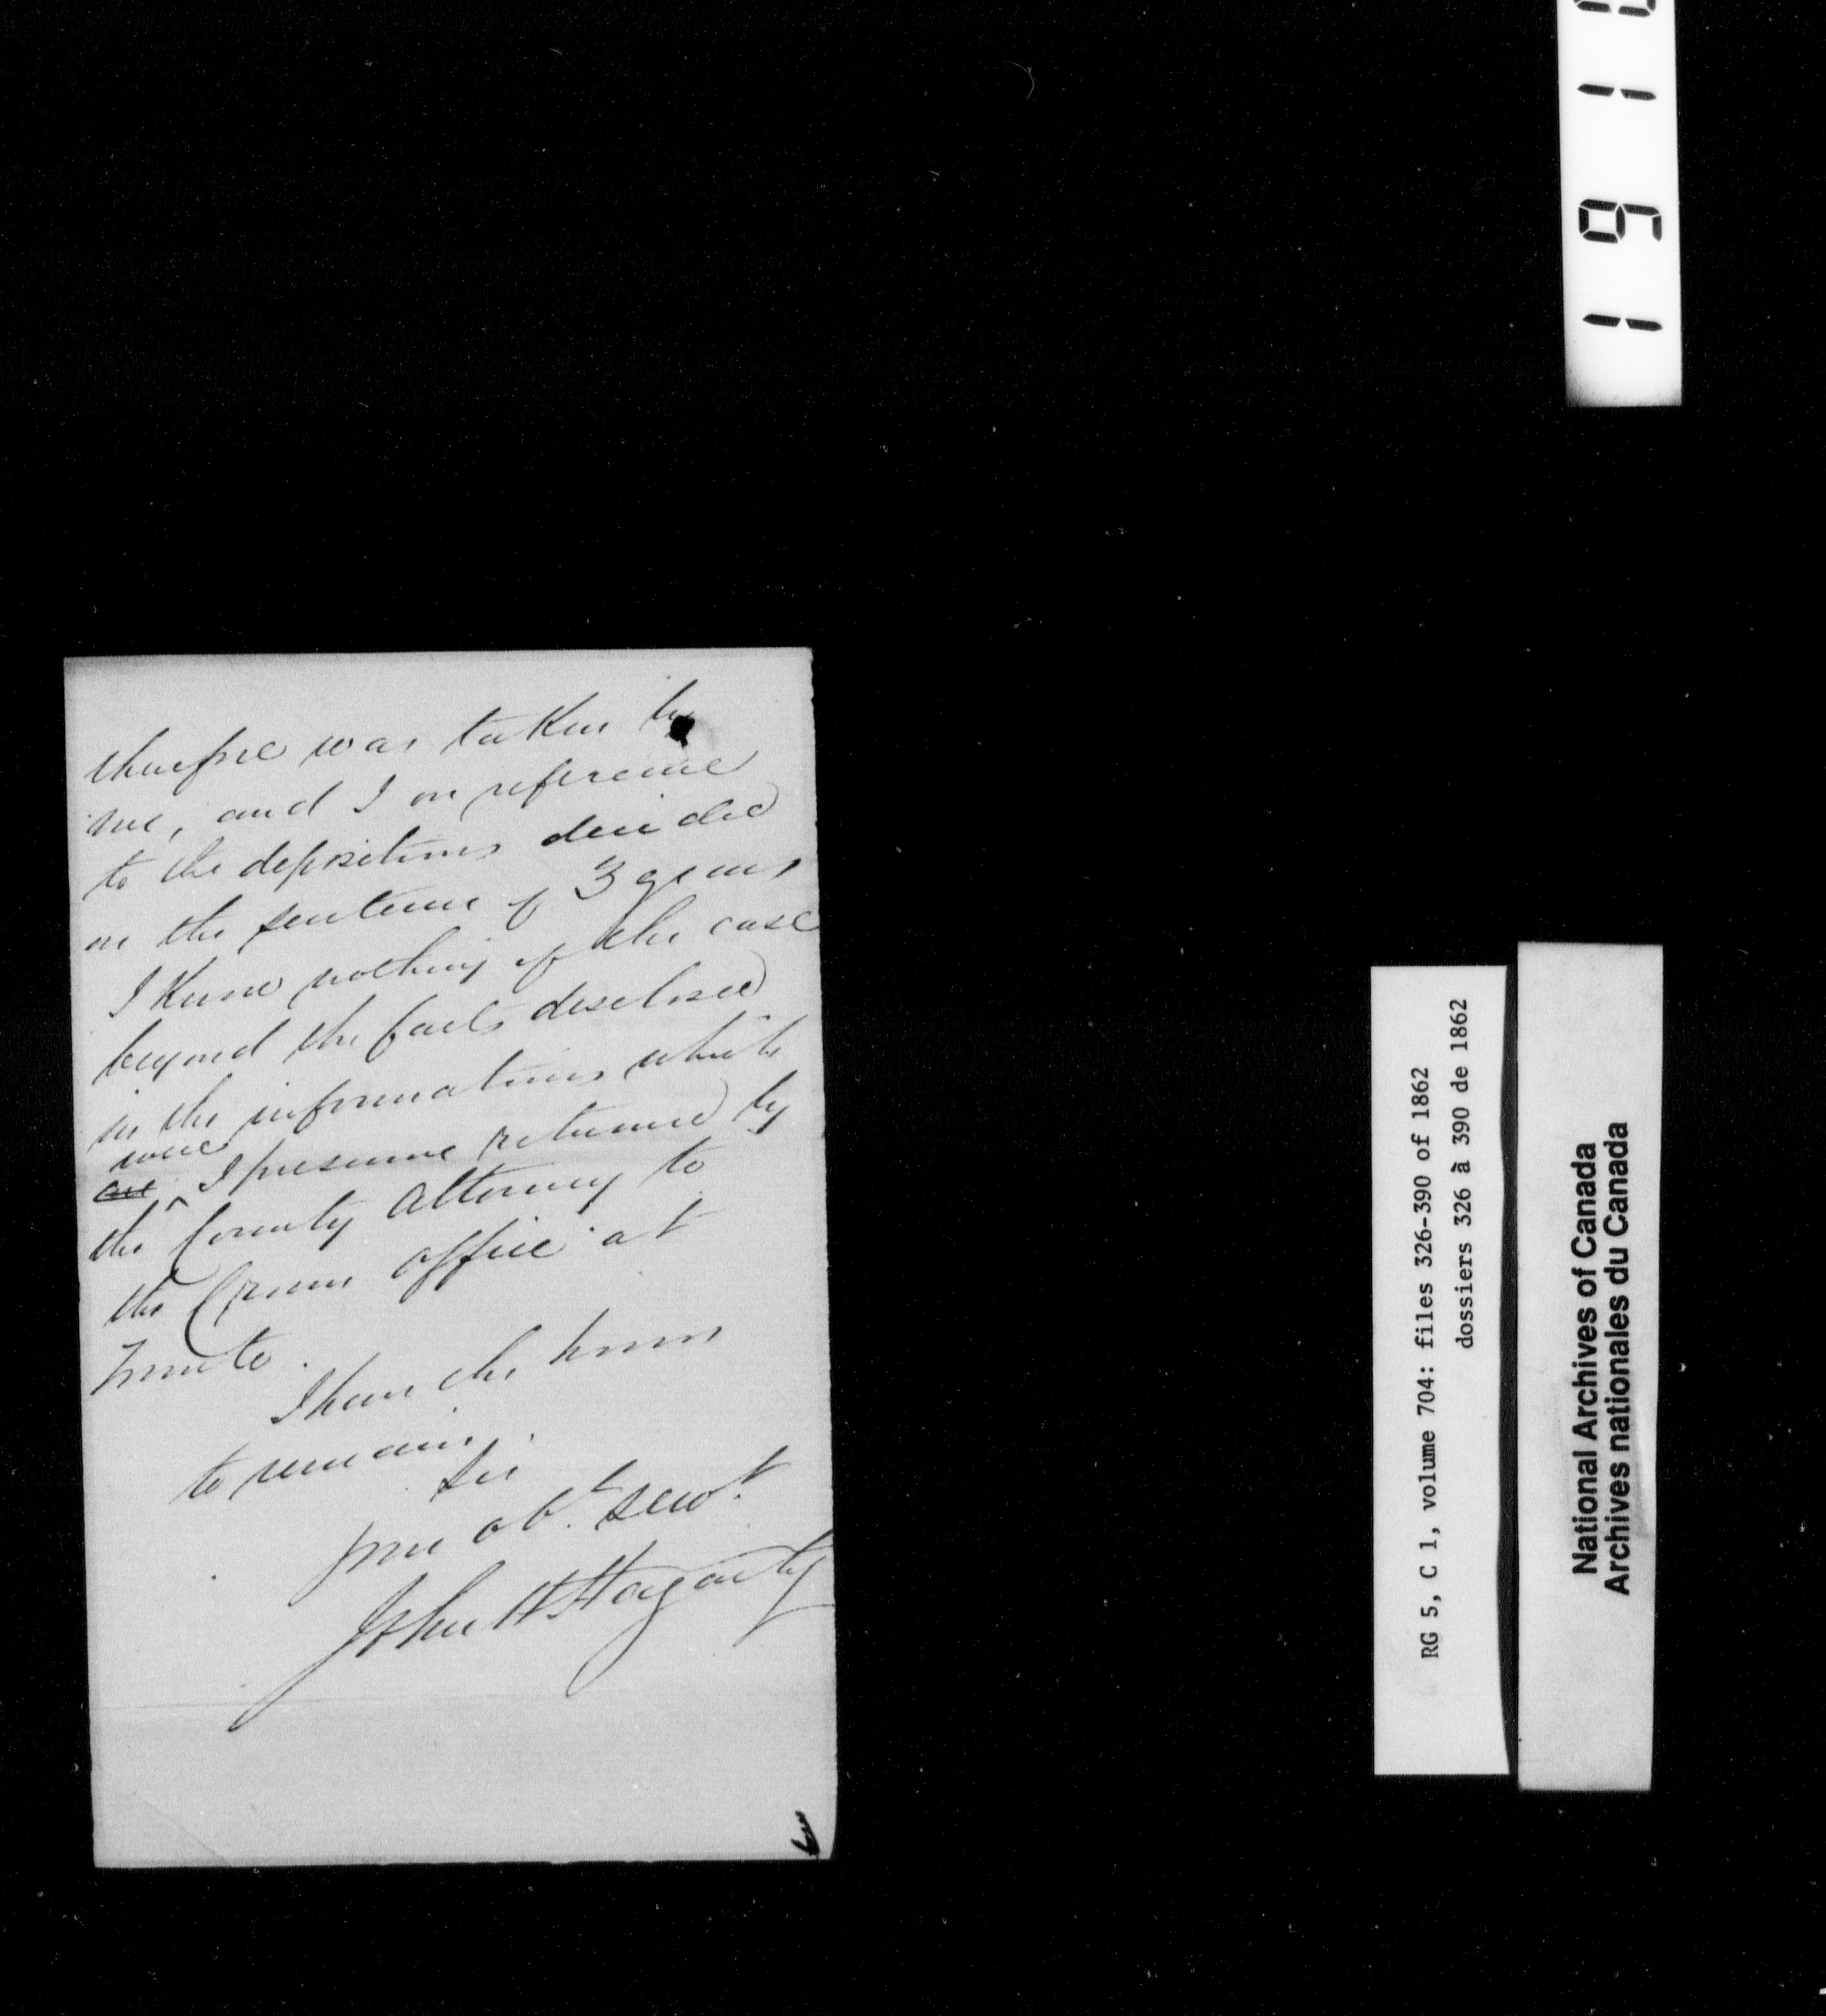 therefore was taken by
me, and I on reference
to the depositions decided
on the sentence of 3 years
I know nothing of the case
beyond the facts disclosed
in the informations which
were
are I presume returned by
the County Attorney to
the Crown office at
Toronto.
I have the honor
to remain
Sir
your obt. servt.
John H Hagarty
RG 5, C 1, volume 704: files 326-390 of 1862
dossiers 326 à 390 de 1862
National Archives of Canada
Archives nationales du Canada